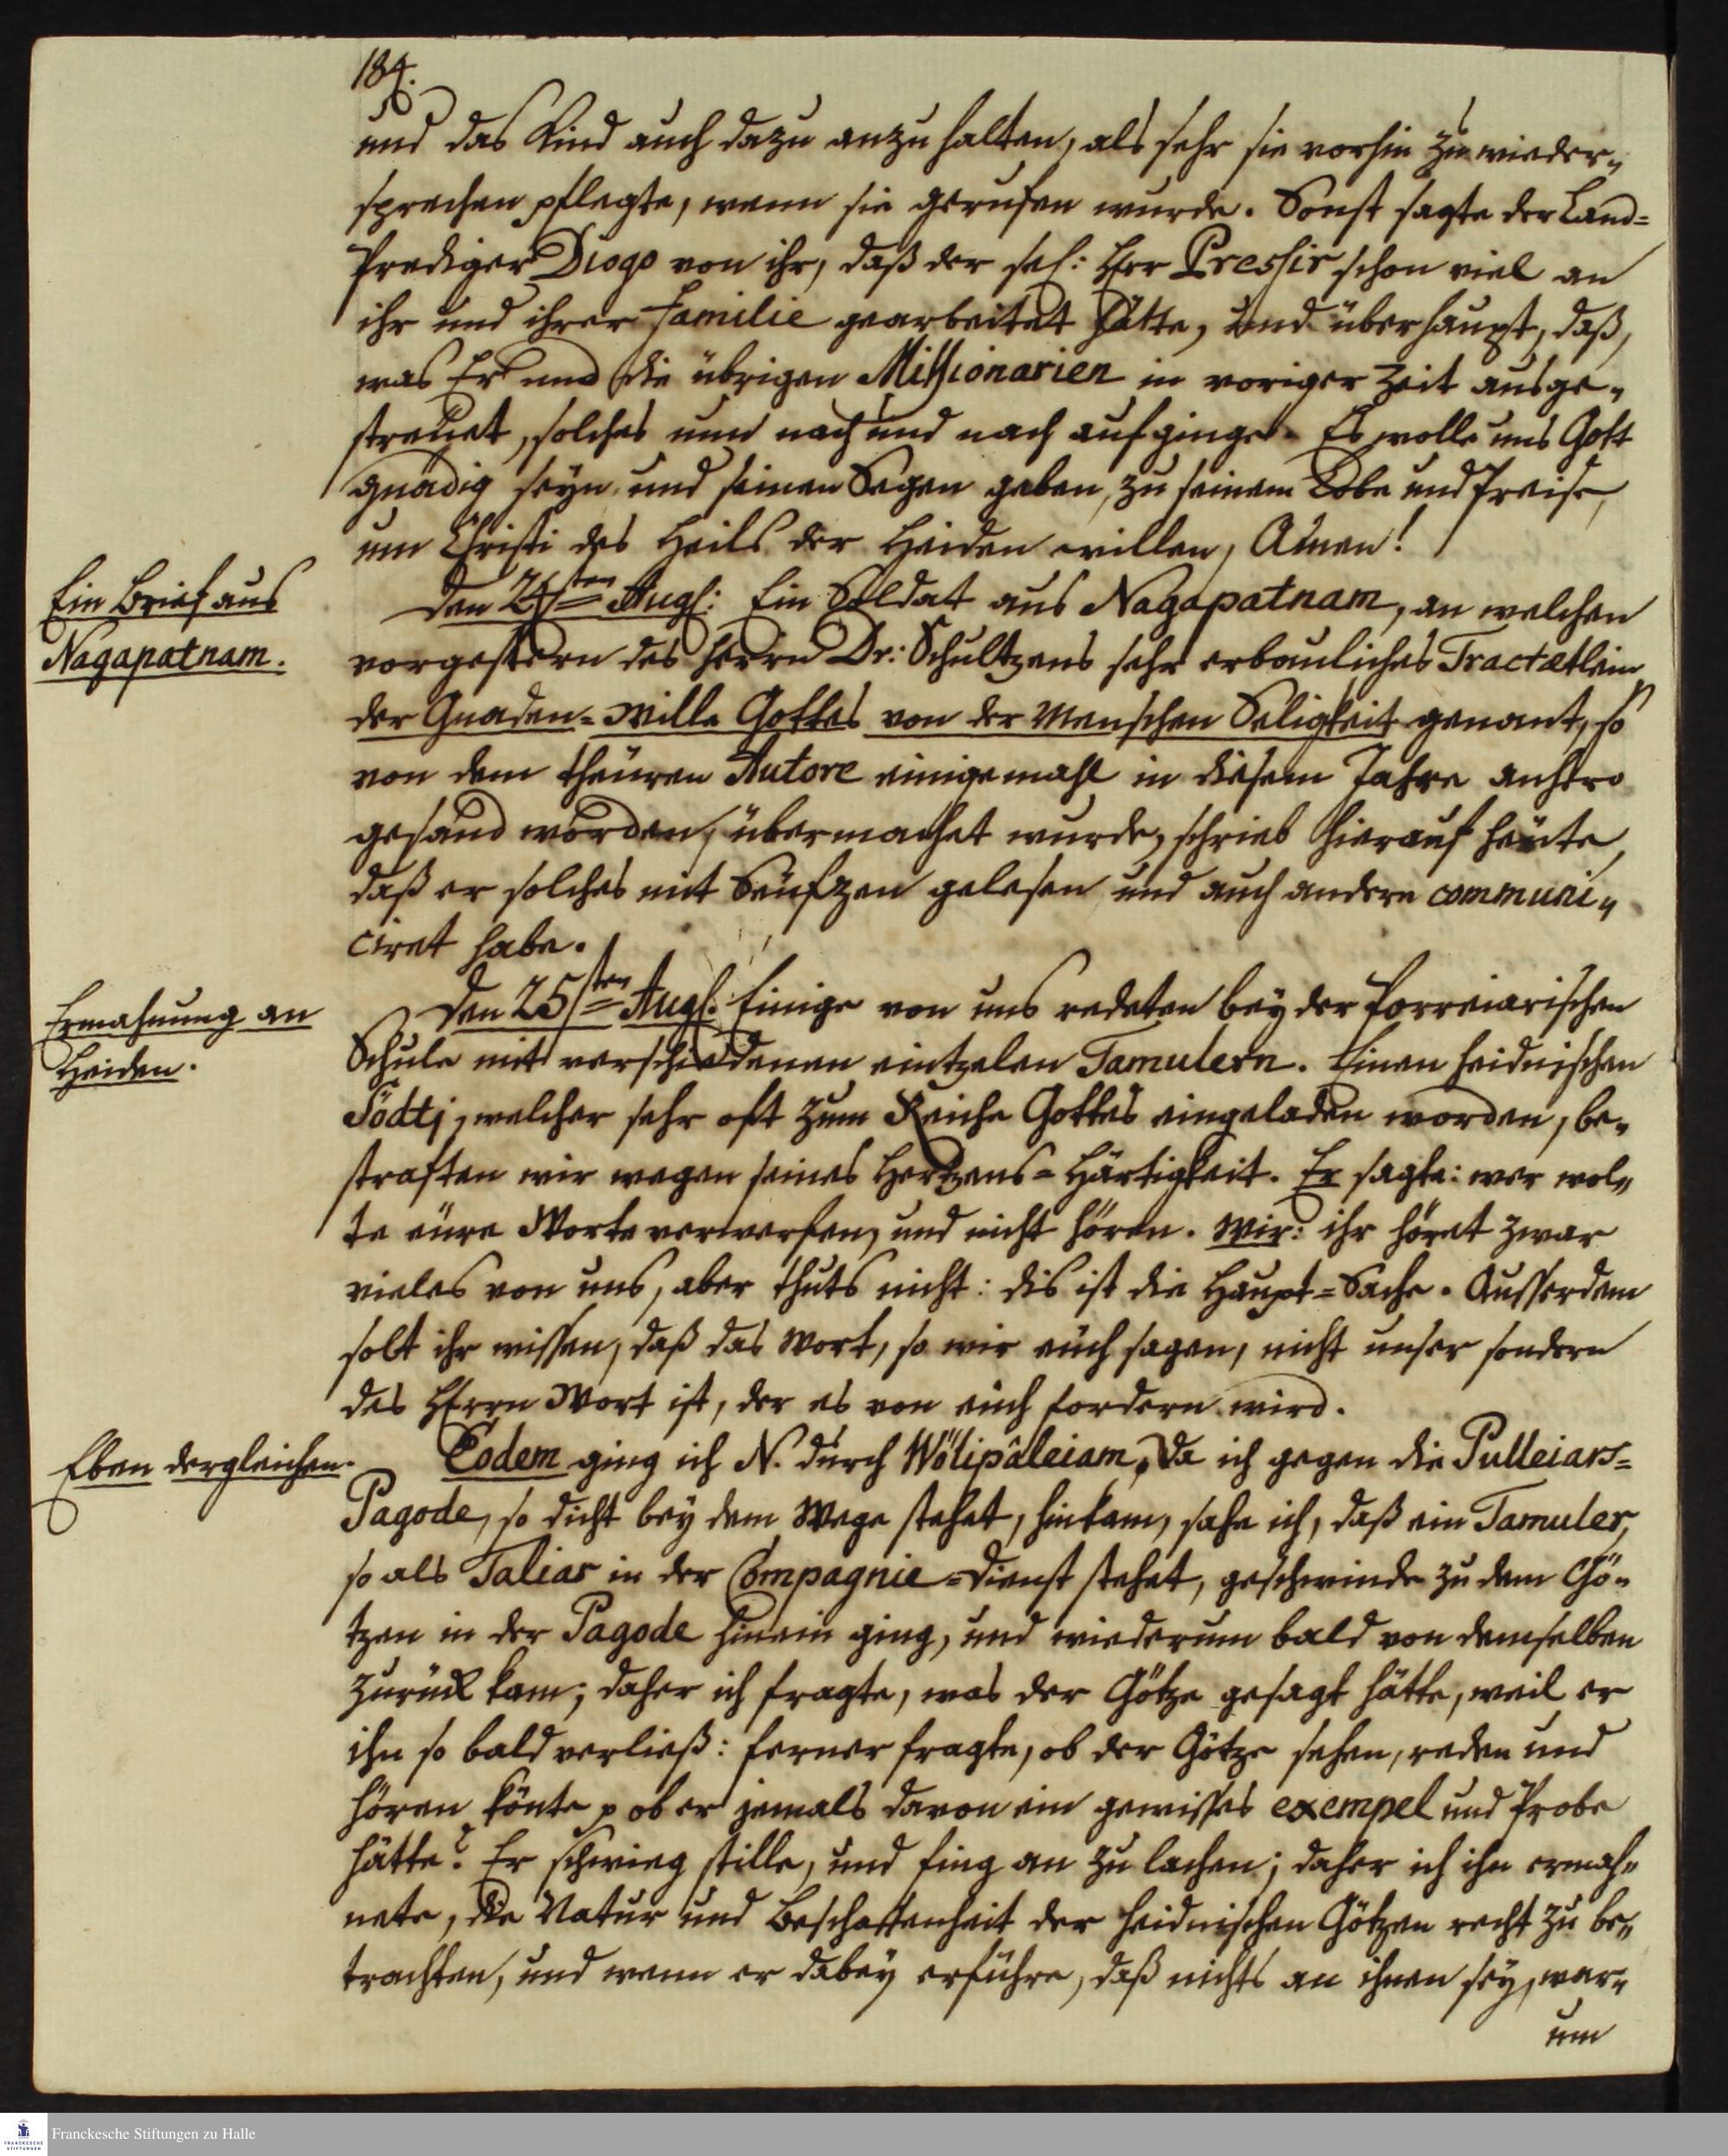 184.
und das Kind auch dazu anzuhalten, als sehr sie vorhin zu wieder„
sprechen pflegte, wenn sie gerufen wurde. Sonst sagte der Land=
Prediger Diogo von ihr, daß der sel: Herr Pressir schon viel an
ihr und ihrer Familie gearbeitet hätte, und überhaupt, daß,
was Er und die übrigen Missionarien in voriger Zeit ausge„
streuet, solches nun nach und nach aufginge. Es wolle uns Gott
gnädig seyn und seinen Segen geben, zu seinem Lobe und Preise,
um Christi des Heils der Heiden willen, Amen!
Ein Brief aus
Nagapatnam.
Den 24sten Augs: Ein Soldat aus Nagapatnam, an welchen
vorgestern des Herrn Dr: Schultzens sehr erbauliches Tractætlein
der Gnaden=Wille Gottes von der Menschen Seligkeit genant, so
von dem theuren Autore einigemahl in diesem Jahre anhero
gesand worden, übermachet wurde, schrieb hierauf heute,
daß er solches mit Seufzen gelesen und auch andern communi„
ciret habe.
Ermahnung an
Heiden.
Den 25sten Augs. Einige von uns redeten bey der Porreiarischen
Schule mit verschiedenen eintzelen Tamulern. Einen heidnischen
Södti, welcher sehr oft zum Reiche Gottes eingeladen worden, be„
straften wir wegen seines Hertzens=Härtigkeit. Er sagte: wer wol„
te eure Worte verwerfen, und nicht hören. Wir: ihr höret zwar
vieles von uns, aber thuts nicht: dis ist die Haupt=Sache. Ausserdem
solt ihr wissen, daß das Wort, so wir euch sagen, nicht unser sondern
des HErrn Wort ist, der es von euch fordern wird.
Eben dergleichen.
Eodem ging ich N. durch Wölipâleiam, Da ich gegen die Pulleiars=
Pagode, so dicht bey dem Wege stehet, hinkam, sahe ich, daß ein Tamuler,
so als Taliar in der Compagnie=Dienst stehet, geschwinde zu dem Gö„
tzen in der Pagode hinein ging, und wiederum bald von demselben
zurück kam; daher ich fragte, was der Götze gesagt hätte, weil er
ihn so bald verließ: ferner fragte, ob der Götze sehen, reden und
hören könte p ob er jemals davon ein gewisses exempel und Probe
hätte? Er schwieg stille, und fing an zu lachen; daher ich ihn ermah„
nete, die Natur und Beschaffenheit der heidnischen Götzen recht zu be„
trachten, und wenn er dabey erführe, daß nichts an ihnen sey, war„
um
Franckesche Stiftungen zu Halle